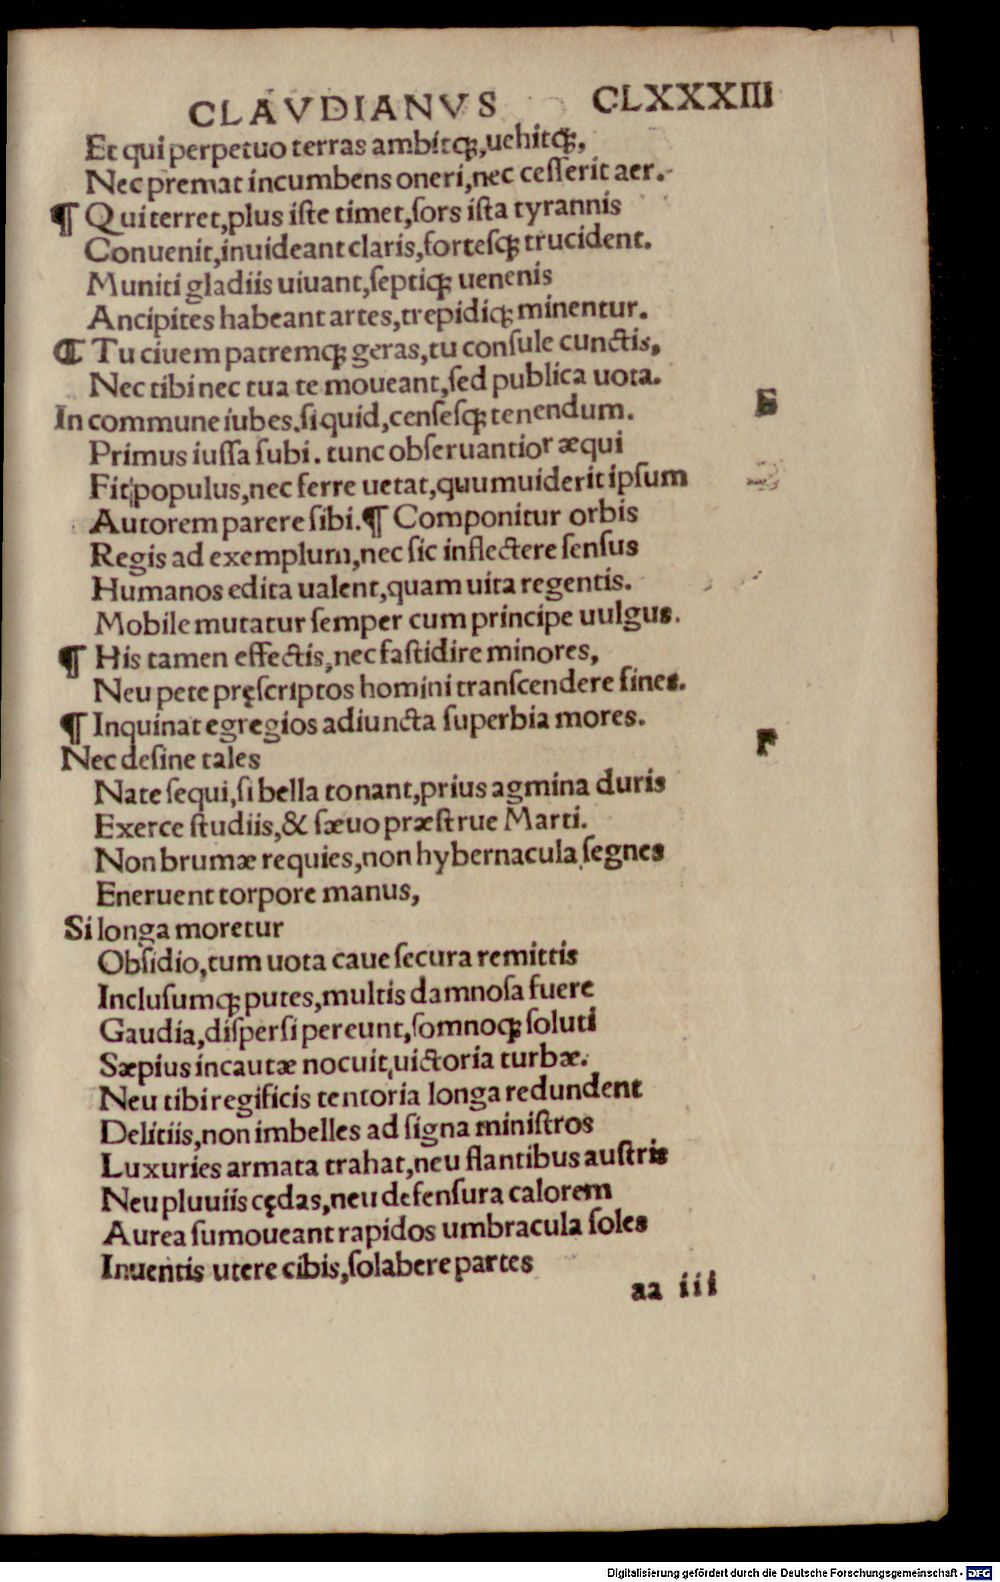 CLAVDIANVS CLXXXIII
Et qui perpetuo terras ambitqꝫ, uehitqꝫ,
Nec premat incumbens oneri, nec cesserit aer.
¶ Qui terret, plus iste timet, sors ista tyrannis
Conuenit, inuideant claris, fortesqꝫ trucident.
Muniti gladiis uiuant, septiqꝫ uenenis
Ancipites habeant artes, trepidiqꝫ minentur.
¶ Tu ciuem patremqꝫ geras, tu consule cunctis,
Nec tibi nec tua te moueant, sed publica uota.
In commune iubes. si quid, censesqꝫ tenendum.
E
Primus iussa subi. tunc obseruantior æqui
Fit populus, nec ferre uetat, quum uiderit ipsum
Autorem parere sibi. ¶ Componitur orbis
Regis ad exemplum, nec sic inflectere sensus
Humanos edita ualent, quam uita regentis.
Mobile mutatur semper cum principe uulgus.
¶ His tamen effectis, nec fastidire minores,
Neu pete pręscriptos homini transcendere fines.
¶ Inquinat egregios adiuncta superbia mores.
F
Nec desine tales
Nate sequi, si bella tonant, prius agmina duris
Exerce studiis, & sæuo præstrue Marti.
Non brumæ requies, non hybernacula segnes
Eneruent torpore manus,
Si longa moretur
Obsidio, tum uota caue secura remittis
Inclusumqꝫ putes, multis damnosa fuere
Gaudia, dispersi pereunt, somnoqꝫ soluti
Sæpius incautæ nocuit, uictoria turbæ.
Neu tibi regificis tentoria longa redundent
Delitiis, non imbelles ad signa ministros
Luxuries armata trahat, neu flantibus austris
Neu pluuiis cędas, neu defensura calorem
Aurea sumoueant rapidos umbracula soles
Inuentis utere cibis, solabere partes
aa iii
Digitalisierung gefördert durch die Deutsche Forschungsgemeinschaft - DFG